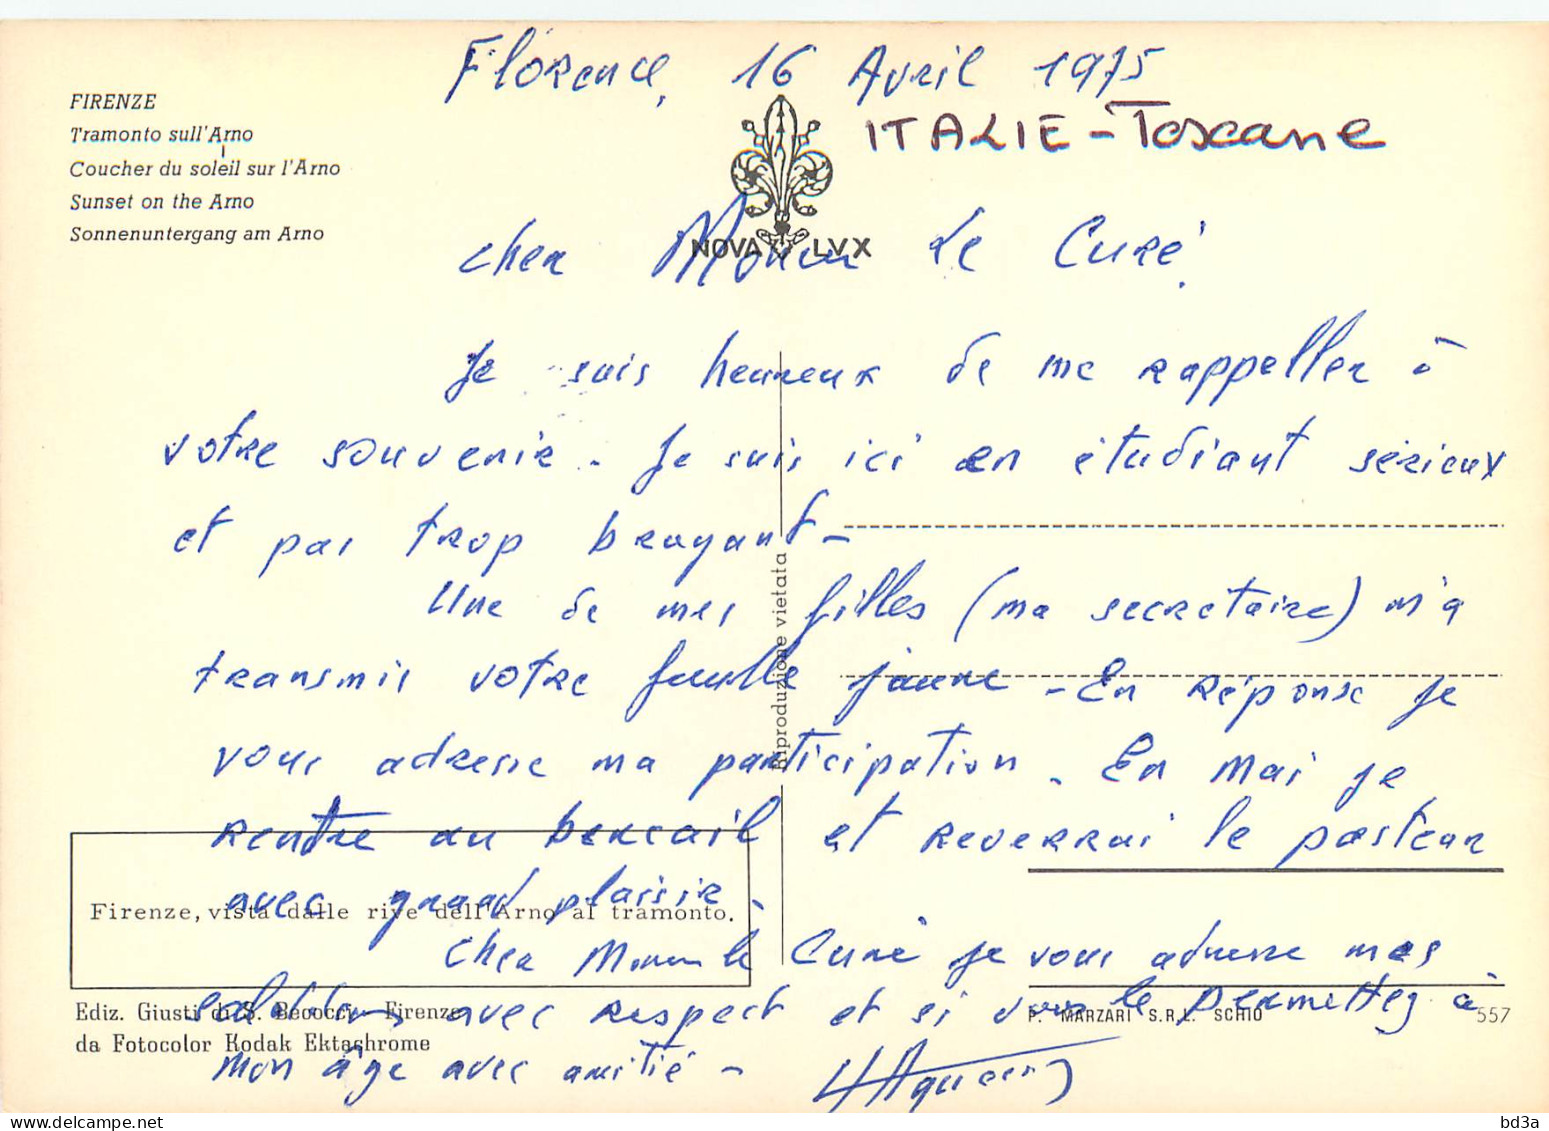 Florence, 16 Avril 1975
ITALIE - Toscane
FIRENZE
Tramonto sull'Arno
Coucher du soleil sur l'Arno
Sunset on the Arno
Sonnenuntergang am Arno
NOVA LVX
Cher le Curé,
Je suis heureux de me rappeller à
votre souvenir - Je suis ici en étudiant sérieux
et pas trop bruyant -
Une de mes filles (ma secrétaire) m'a
transmis votre feuille jaune - En réponse je
vous adresse ma participation. En Mai je
rentre au bercail et reverrai le pasteur
avec grand plaisir.
Cher le Curé je vous adresse mes
salutations avec respect et si vous le permettez à
mon âge avec amitié -
Riproduzione vietata
Firenze, vista dalle rive dell'Arno al tramonto.
Ediz. Giusti di S. Becocci - Firenze
da Fotocolor Kodak Ektachrome
P. MARZARI S.R.L. SCHIO
557
bd3a